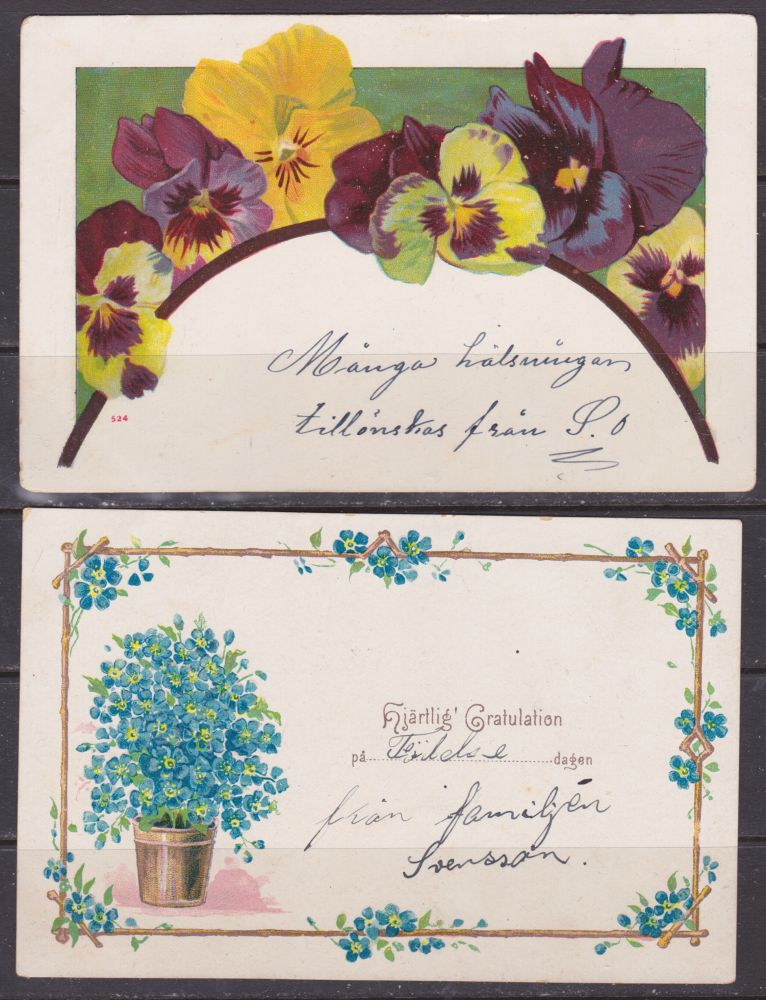 Många hälsningar
tillönskas från S. O
524
Hjärtlig' Gratulation
på Födelse dagen
från familjen
Svensson.